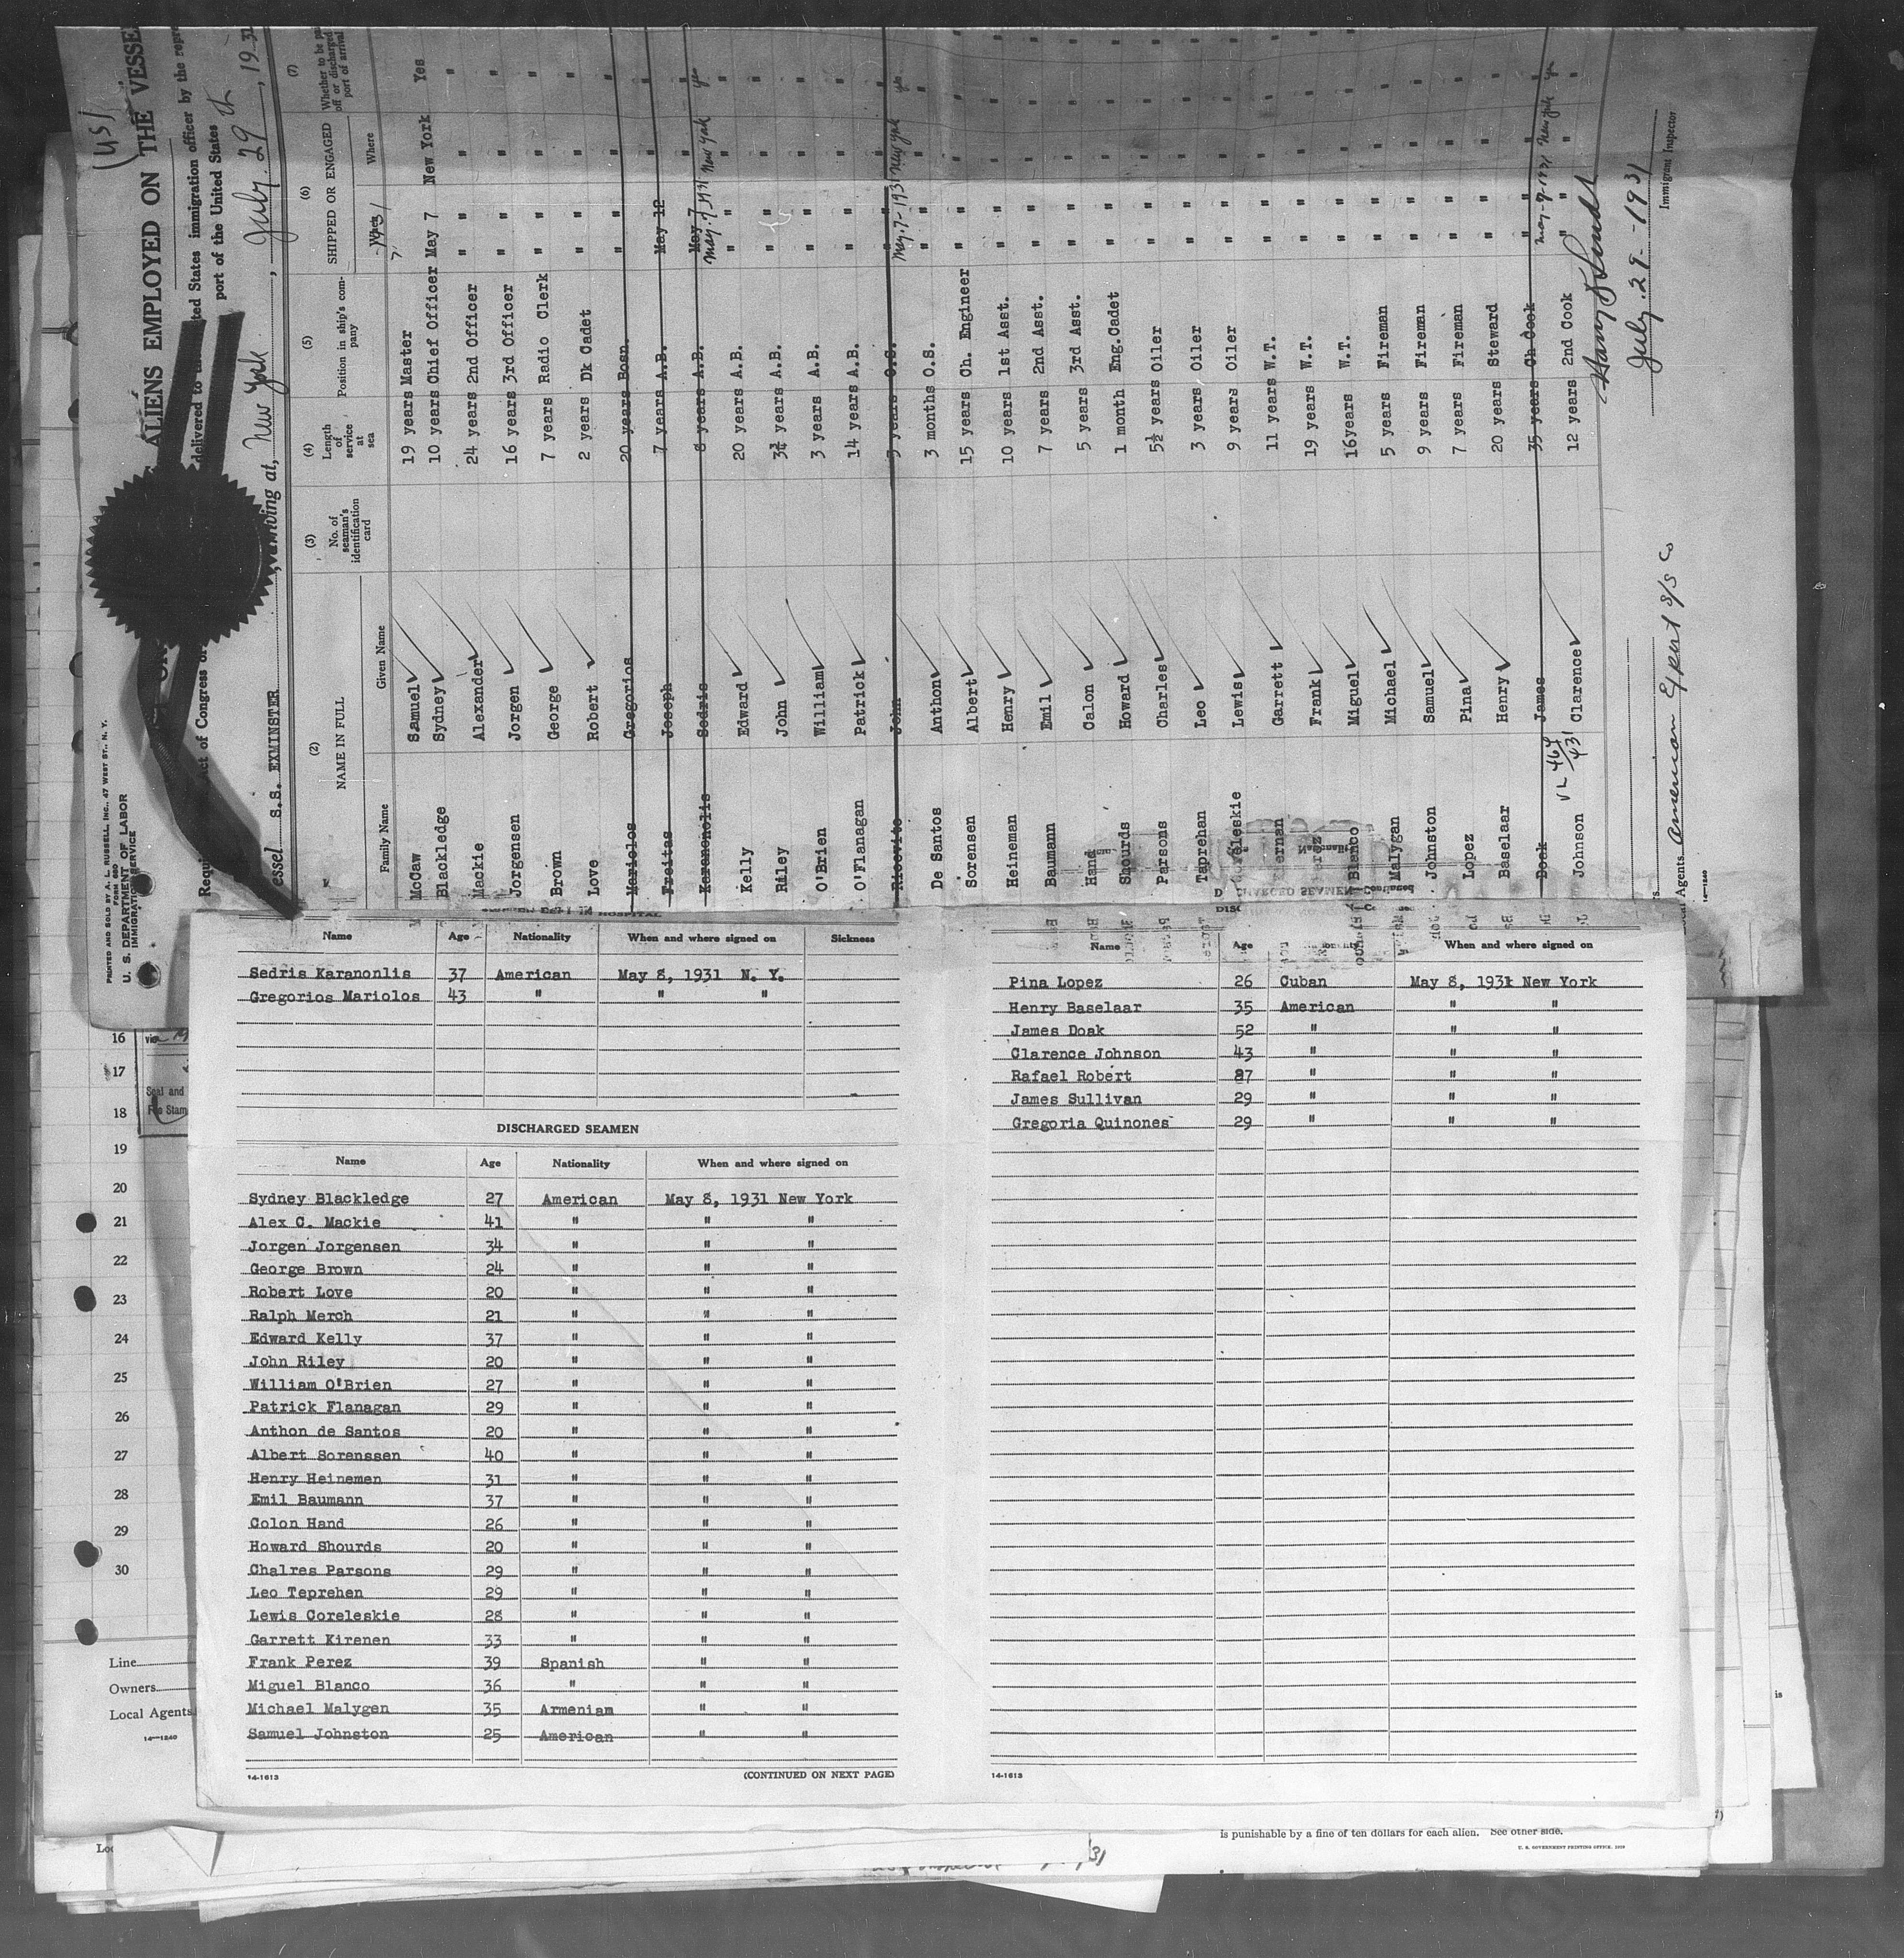 (US)
ALIENS EMPLOYED ON THE VESSE
Act of Congress of
delivered to
ted States immigration officer by the repre
port of the United States
essel S.S. EXMINSTER, arriving at, New York, July 29th, 1931
PRINTED AND SOLD BY A. L. RUSSELL, INC., 47 WEST ST., N. Y.
FORM 680
U. S. DEPARTMENT OF LABOR
IMMIGRATION SERVICE
(2) (3) (4) (5) (6) (7)
NAME IN FULL
Family Name Given Name
No. of seaman's identification card
Length of service at sea
Position in ship's company
SHIPPED OR ENGAGED
When Where
1931
Whether to be paid off or discharged port of arrival
McGaw Samuel 19 years Master
Blackledge Sydney 10 years Chief Officer May 7 New York Yes
Mackie Alexander 24 years 2nd Officer " " " "
Jorgensen Jorgen 16 years 3rd Officer " " " "
Brown George 7 years Radio Clerk " " " "
Love Robert 2 years Dk Cadet " " " "
Mariolos Gregorios 20 years Bosn. " " " "
Freitas Joseph 7 years A.B. May 12 " "
Karenonolis Sedris 8 years A.B. May 7 " "
May-7-1931 New York yes
Kelly Edward 20 years A.B. " " " "
Riley John 3¾ years A.B. " " " "
O'Brien William 3 years A.B. " " " "
O'Flanagan Patrick 14 years A.B. " " " "
John 5 years O.S. " " " "
May-7-1931 New York yes
De Santos Anthon 3 months O.S. " " " "
Sorensen Albert 15 years Ch. Engineer " " " "
Heineman Henry 10 years 1st Asst. " " " "
Baumann Emil 7 years 2nd Asst. " " " "
Hand Calon 5 years 3rd Asst. " " " "
Shourds Howard 1 month Eng.Cadet " " " "
Parsons Charles 5½ years Oiler " " " "
Taprehan Leo 3 years Oiler " " " "
Lewis 9 years Oiler " " " "
Garrett 11 years W.T. " " " "
Frank 19 years W.T. " " " "
Blanco Miguel 16years W.T. " " " "
Malygan Michael 5 years Fireman " " " "
Johnston Samuel 9 years Fireman " " " "
Lopez Pina 7 years Fireman " " " "
Baselaar Henry 20 years Steward " " " "
Doak James 35 years Ch Cook " " " "
VL 464/431 May-7-1931 New York yes
Johnson Clarence 12 years 2nd Cook " " " "
July 29-1931
Immigrant Inspector
Agents American Export S/S Co
14-1240
Name Age Nationality When and where signed on Sickness
Sedris Karanonlis 37 American May 8, 1931 N. Y.
Gregorios Mariolos 43 " " "
DISCHARGED SEAMEN
Name Age Nationality When and where signed on
Sydney Blackledge 27 American May 8, 1931 New York
Alex C. Mackie 41 " " "
Jorgen Jorgensen 34 " " "
George Brown 24 " " "
Robert Love 20 " " "
Ralph Merch 21 " " "
Edward Kelly 37 " " "
John Riley 20 " " "
William O'Brien 27 " " "
Patrick Flanagan 29 " " "
Anthon de Santos 20 " " "
Albert Sorenssen 40 " " "
Henry Heinemen 31 " " "
Emil Baumann 37 " " "
Colon Hand 26 " " "
Howard Shourds 20 " " "
Chalres Parsons 29 " " "
Leo Teprehen 29 " " "
Lewis Coreleskie 28 " " "
Garrett Kirenen 33 " " "
Frank Perez 39 Spanish " "
Miguel Blanco 36 " " "
Michael Malygen 35 Armenian " "
Samuel Johnston 25 American " "
14-1613 (CONTINUED ON NEXT PAGE)
Name Age When and where signed on
Pina Lopez 26 Cuban May 8, 1931 New York
Henry Baselaar 35 American " "
James Doak 52 " " "
Clarence Johnson 43 " " "
Rafael Robert 27 " " "
James Sullivan 29 " " "
Gregoria Quinones 29 " " "
14-1613
16
17
Seal and
Fee Stam
18
19
20
21
22
23
24
25
26
27
28
29
30
Line
Owners
Local Agents
14-1240
is
is punishable by a fine of ten dollars for each alien. See other side.
U. S. GOVERNMENT PRINTING OFFICE
31